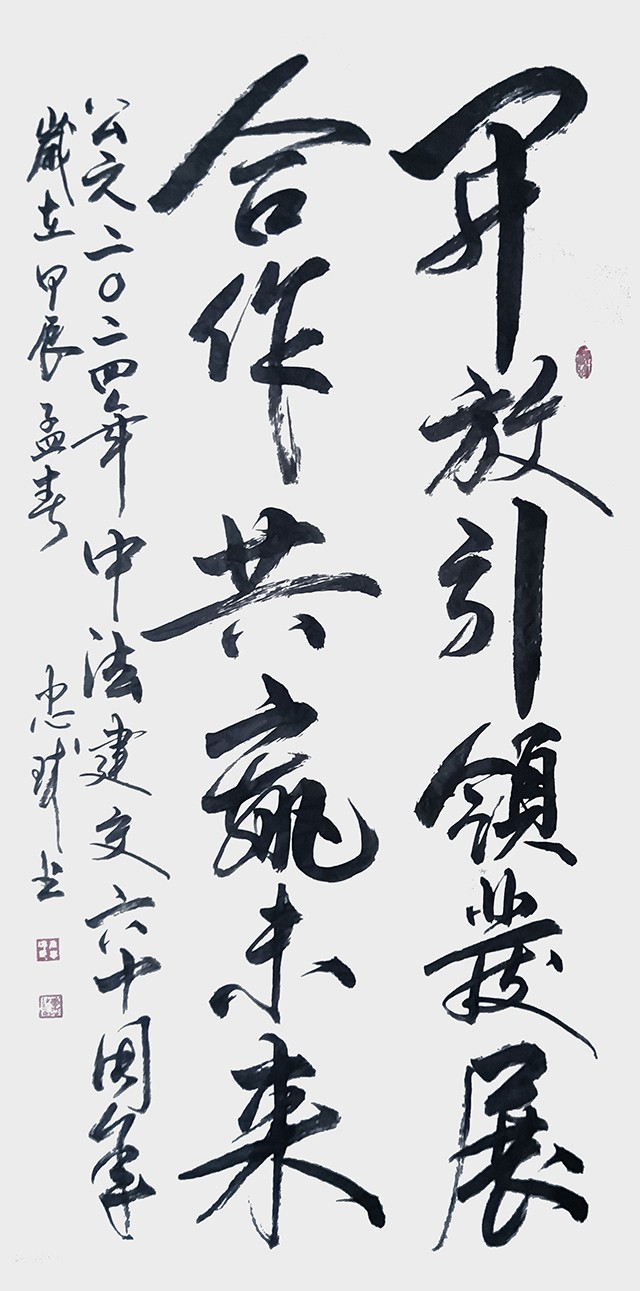 开放引领發展
合作共赢未来
公元二〇二四年中法建交六十周年
歲在甲辰孟春 忠诚书